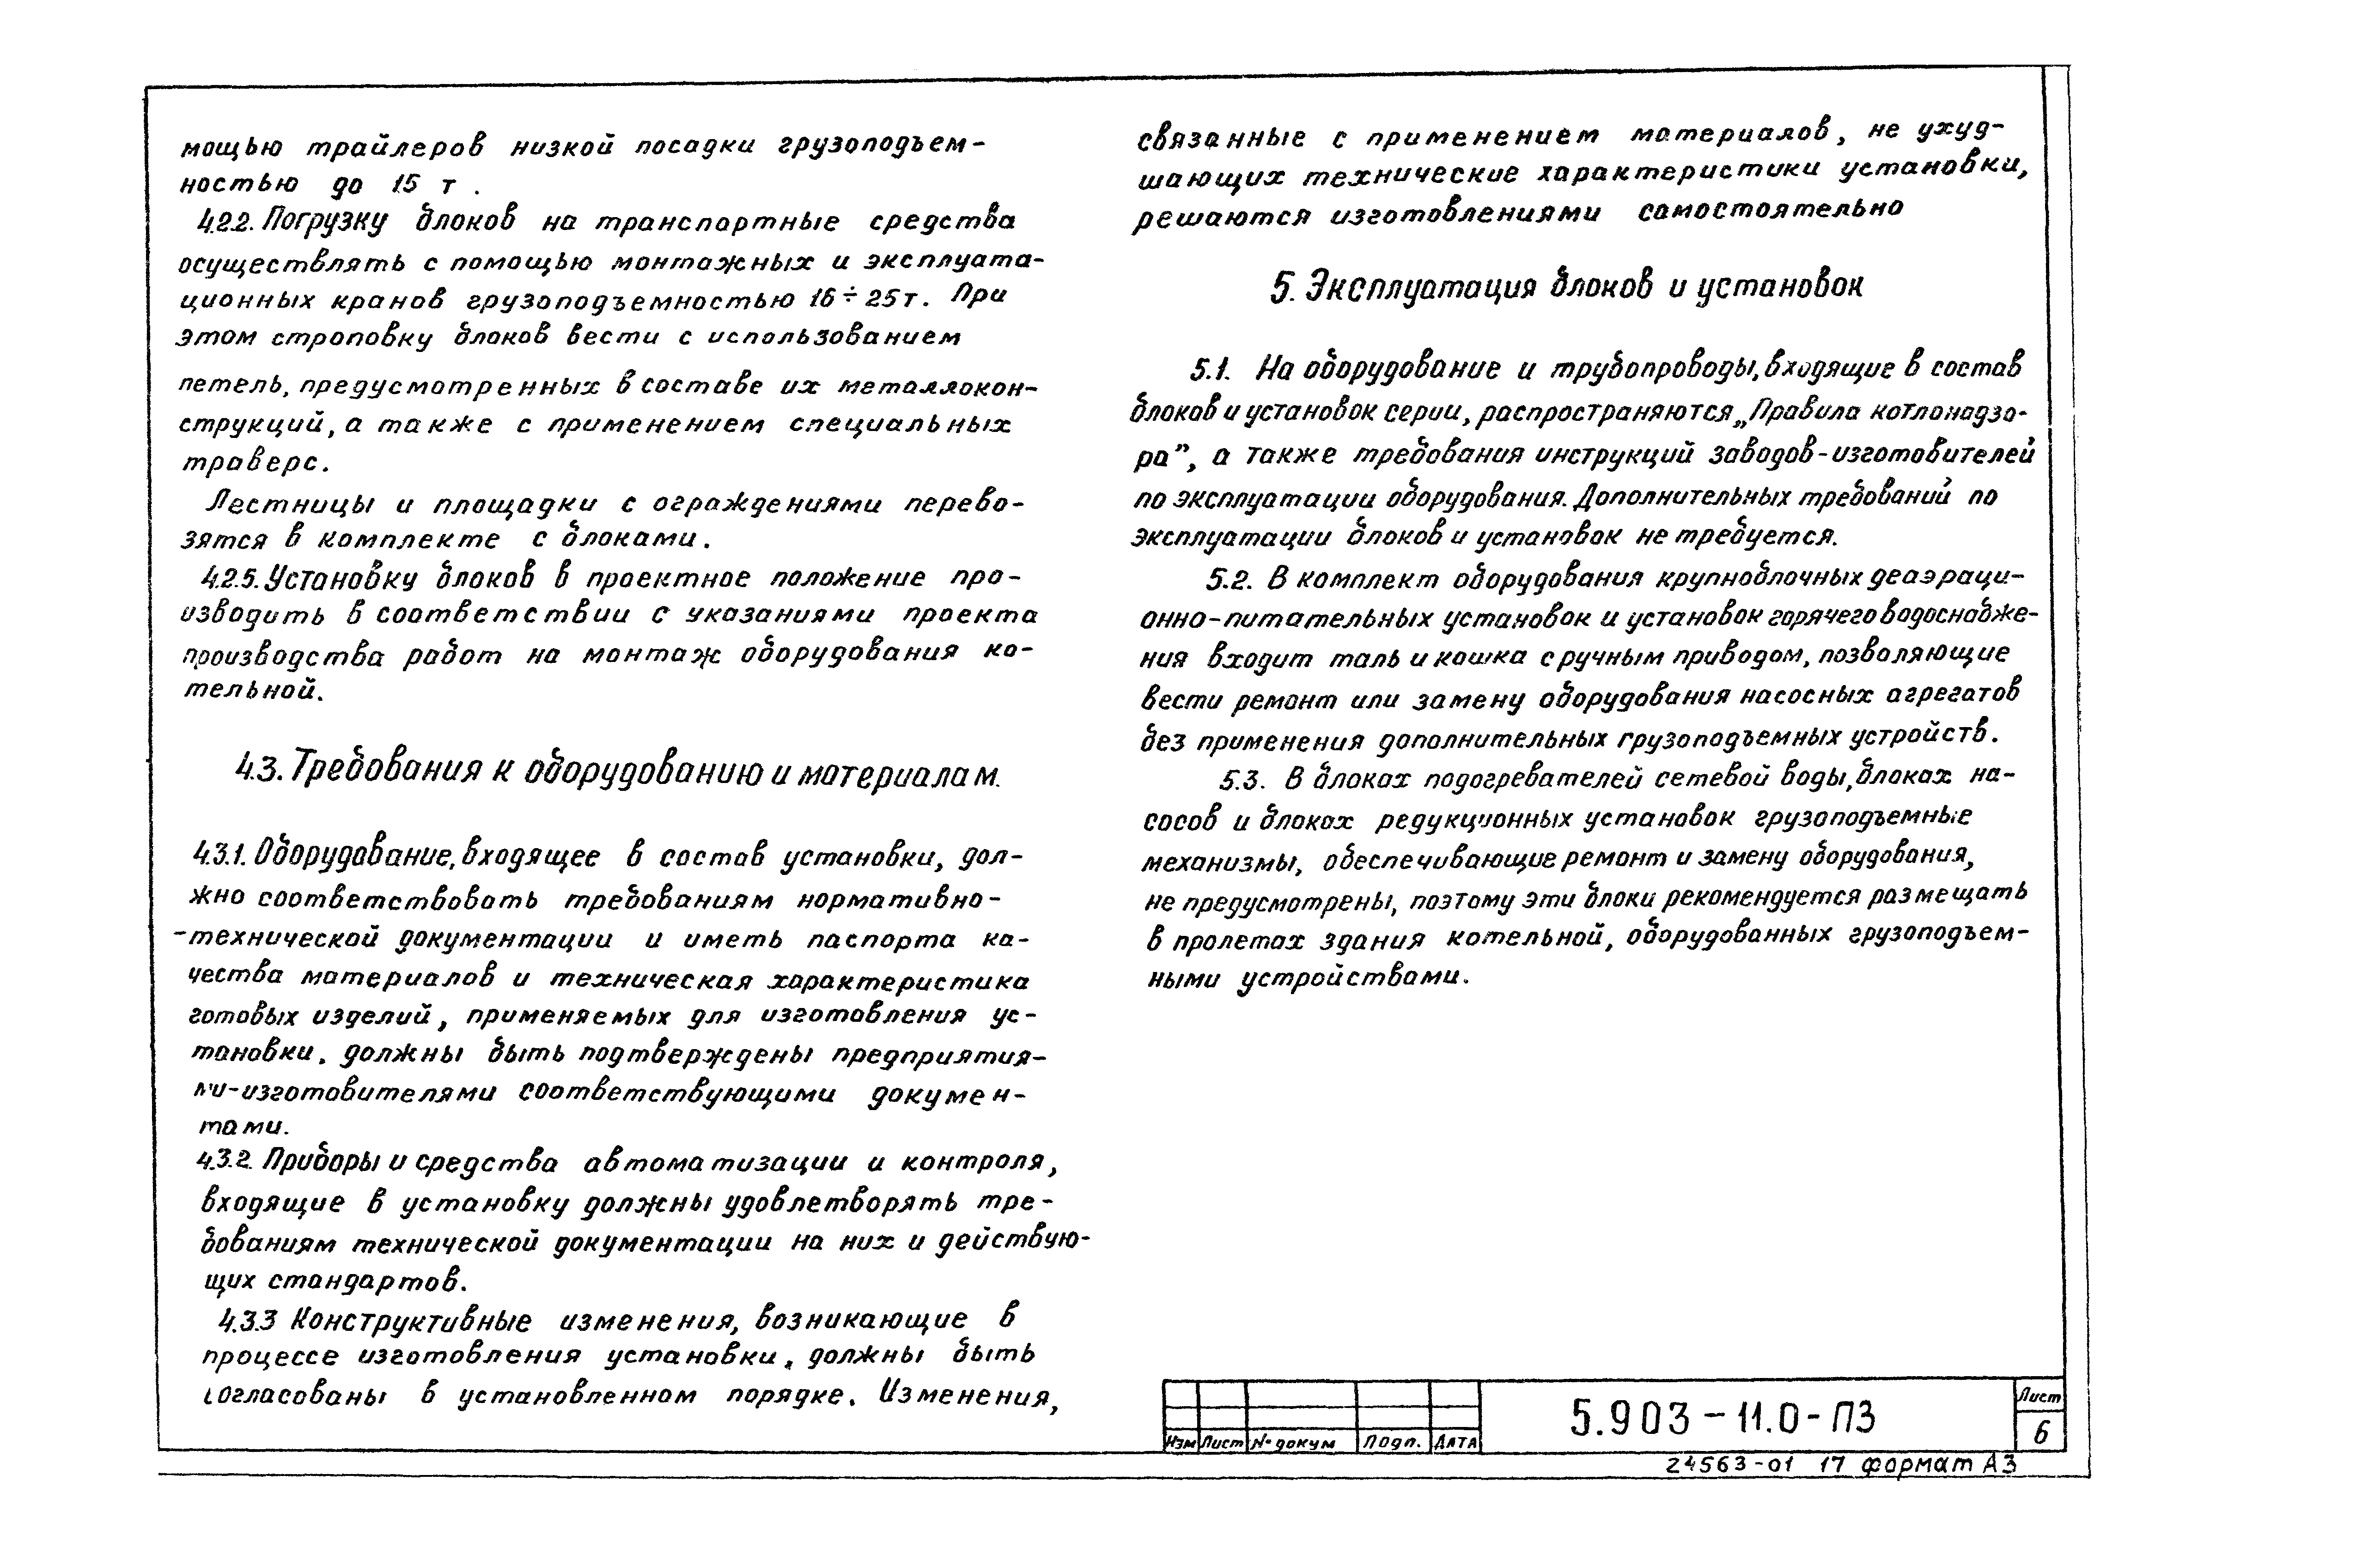 мощью трайлеров низкой посадки грузоподъем-
ностью до 15 т .
4.2.2. Погрузку блоков на транспортные средства
осуществлять с помощью монтажных и эксплуата-
ционных кранов грузоподъемностью 16÷25т. При
этом строповку блоков вести с использованием
петель, предусмотренных в составе их металлокон-
струкций, а также с применением специальных
траверс.
Лестницы и площадки с ограждениями перево-
зятся в комплекте с блоками.
4.2.5. Установку блоков в проектное положение про-
изводить в соответствии с указаниями проекта
производства работ на монтаж оборудования ко-
тельной.
4.3. Требования к оборудованию и материалам.
4.3.1. Оборудование, входящее в состав установки, дол-
жно соответствовать требованиям нормативно-
-технической документации и иметь паспорта ка-
чества материалов и техническая характеристика
готовых изделий, применяемых для изготовления ус-
тановки, должны быть подтверждены предприятия-
ми-изготовителями соответствующими докумен-
тами.
4.3.2. Приборы и средства автоматизации и контроля,
входящие в установку должны удовлетворять тре-
бованиям технической документации на них и действую-
щих стандартов.
4.3.3 Конструктивные изменения, возникающие в
процессе изготовления установки, должны быть
согласованы в установленном порядке. Изменения,
связанные с применением материалов, не ухуд-
шающих технические характеристики установки,
решаются изготовлениями самостоятельно
5. Эксплуатация блоков и установок
5.1. На оборудование и трубопроводы, входящие в состав
блоков и установок серии, распространяются „Правила котлонадзо-
ра", а также требования инструкций заводов-изготовителей
по эксплуатации оборудования. Дополнительных требований по
эксплуатации блоков и установок не требуется.
5.2. В комплект оборудования крупноблочных деаэраци-
онно-питательных установок и установок горячего водоснабже-
ния входит таль и кошка с ручным приводом, позволяющие
вести ремонт или замену оборудования насосных агрегатов
без применения дополнительных грузоподъемных устройств.
5.3. В блоках подогревателей сетевой воды, блоках на-
сосов и блоках редукционных установок грузоподъемные
механизмы, обеспечивающие ремонт и замену оборудования,
не предусмотрены, поэтому эти блоки рекомендуется размещать
в пролетах здания котельной, оборудованных грузоподъем-
ными устройствами.
Изм Лист № докум Подп. Дата
5.903-11.0-ПЗ
Лист
6
24563-01 17 формат А3